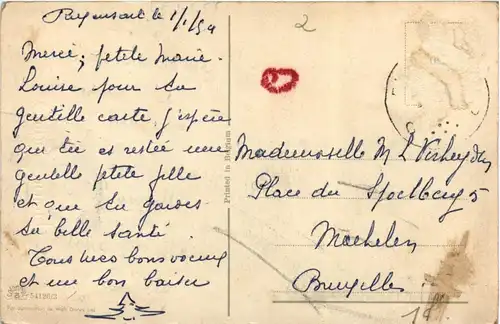 le 1/1/54
Merci, petite Marie
Louise pour ta
gentille carte j'espère
que tu es restée une
gentille petite fille
et que tu gardes
ta belle santé.
Tous mes bons voeux
et un bon baiser
2
Mademoiselle M L
Place du Spoelberg 5
Machelen
Bruxelles
Printed in Belgium